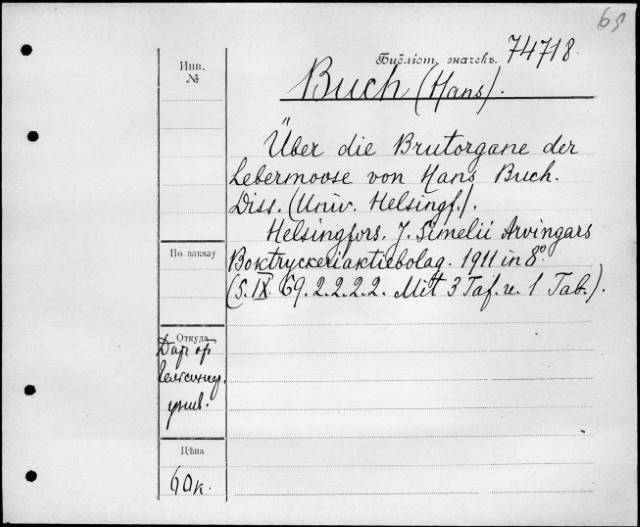 65
Библіот. значекъ. 74718.
Инв.
№
Buch (Hans).
Über die Brutorgane der
Lebermoose von Hans Buch.
Diss. (Univ. Helsingf.).
Helsingfors. J. Simelii Arvingars
По заказу
Boktryckeriaktiebolag. 1911 in 8°
(S. IX. 69. 2. 2. 2. 2. Mit 3 Taf. u. 1 Tab.).
Откуда
Дар
унив.
Цѣна
60к.